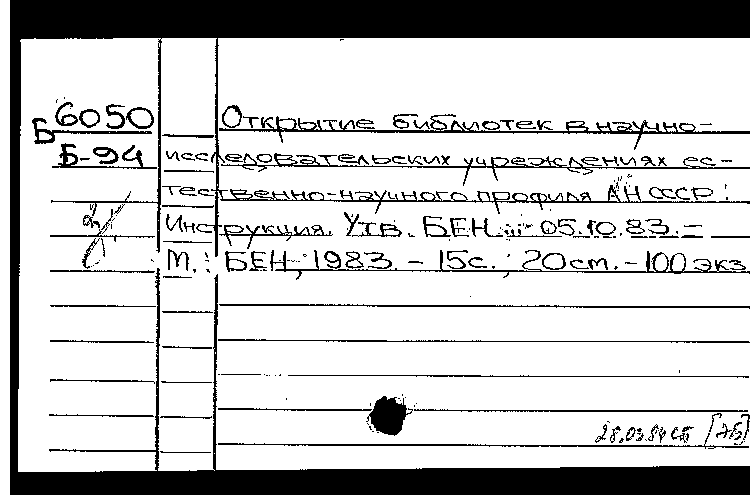 Б 6050 Открытие библиотек в научно-
Б-94 исследовательских учреждениях ес-
тественно-научного профиля АН СССР:
Инструкция. Утв. БЕН 05.10.83.-
М.: БЕН, 1983. - 15с.; 20 cm. - 100 экз
28.03.84